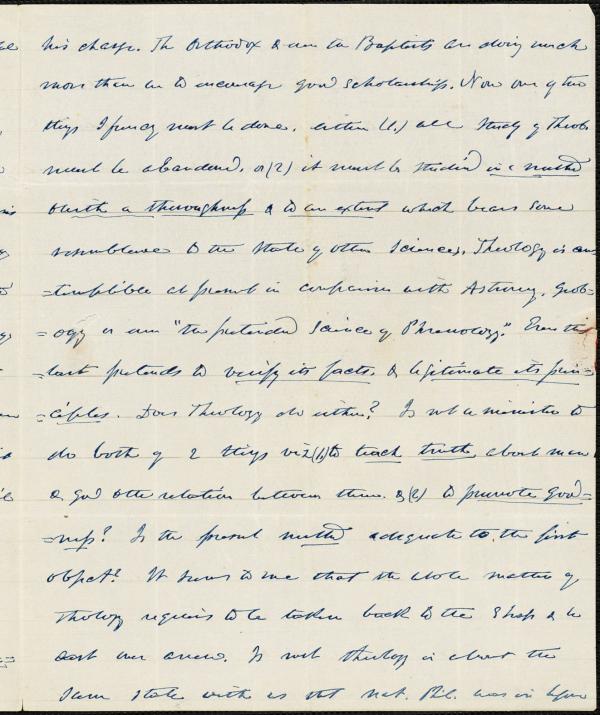 his charge. The Orthodox & even the Baptists are doing much
more than we to encourage good scholarship. Now one of two
things I fancy must be done. either (1.) all study of Theol.
must be abandoned, or (2) it must be studied in a method
& with a thoroughness & to an extent which bears some
resemblance to the state of other Sciences. Theology is con-
=temptible at present in comparison with Astronomy, Geol=
=ogy or even "the pretended science of Phrenology." Even this
last pretends to verify its facts, & legitimate its prin=
=ciples. Does Theology do either? Is not a minister to
do both of 2 things viz (1) to teach truth about man
& god & the relation between them. & (2) to promote good=
=ness? Is the present method adequate to the first
object? It seems to me that the whole matter of
Theology requires to be taken back to the Shop & be
cast over anew. Is not theology in about the
same state with us that nat. Phil. was in before